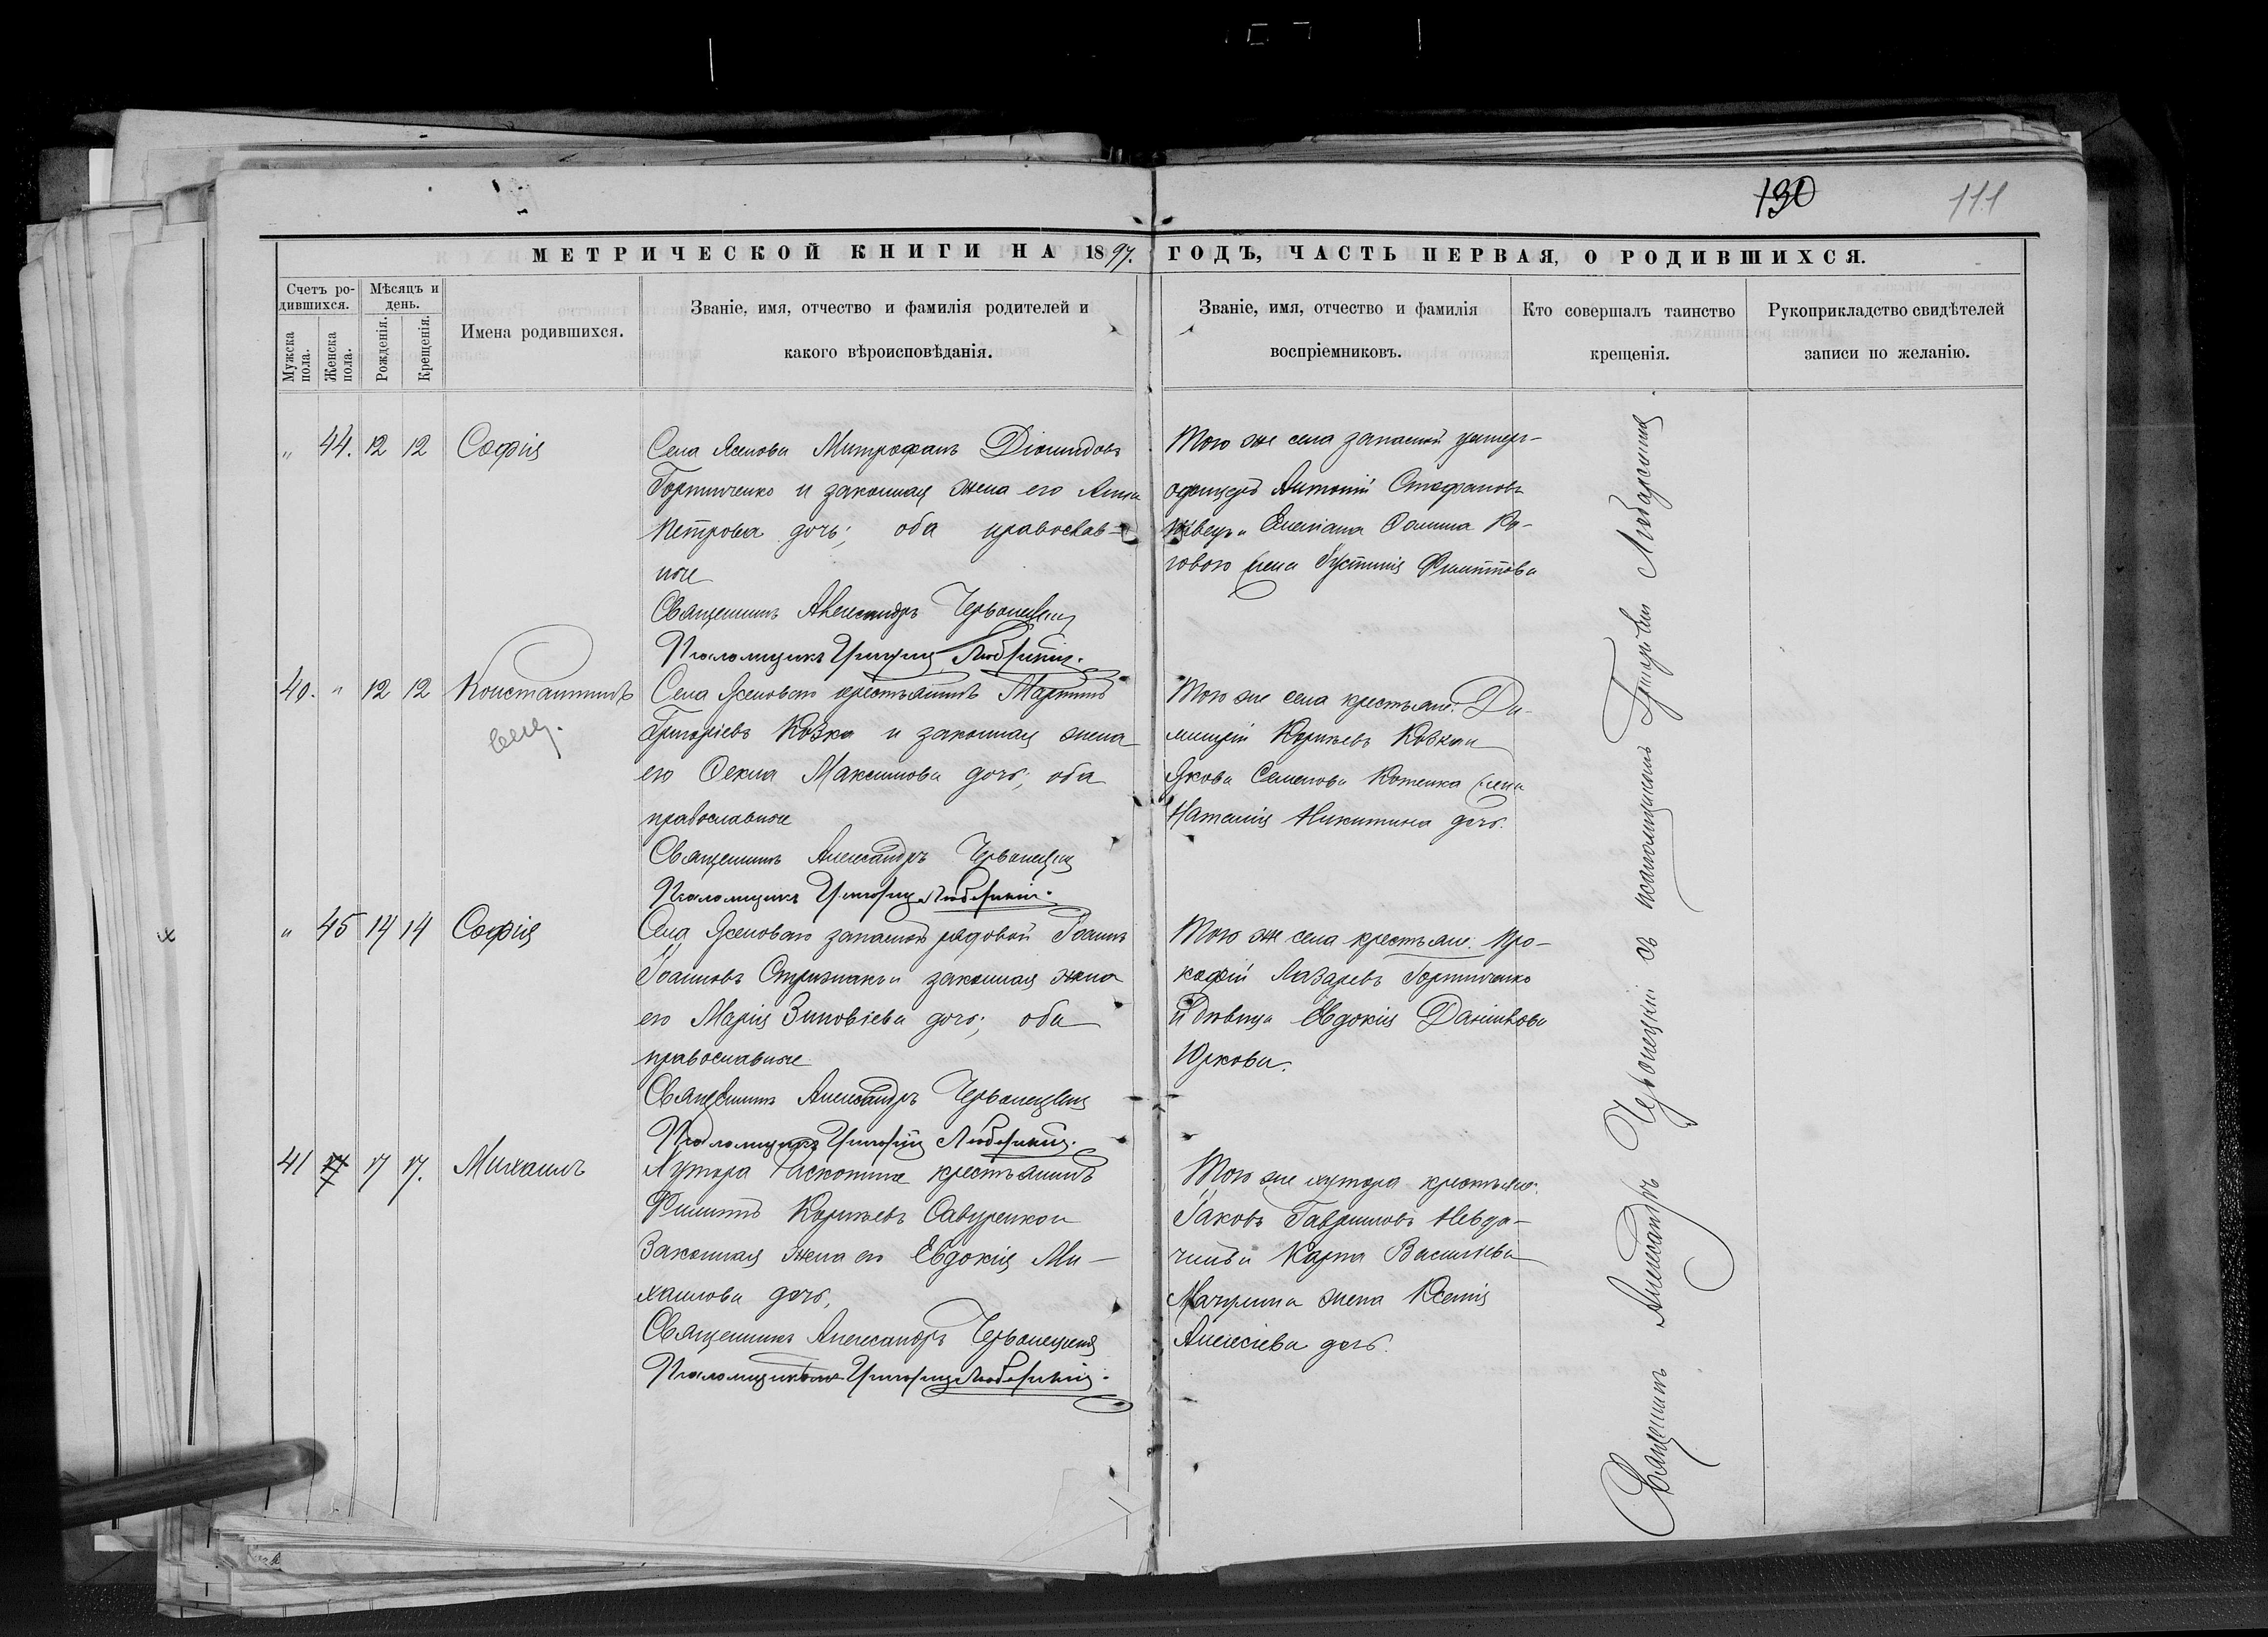 130 111
МЕТРИЧЕСКОЙ КНИГИ НА 1897. ГОДЪ, ЧАСТЬ ПЕРВАЯ, О РОДИВШИХСЯ.
Счетъ родившихся.
Мужска пола.
Женска пола.
Мѣсяцъ и день.
Рожденія.
Крещенія.
Имена родившихся.
Званіе, имя, отчество и фамилія родителей и
какого вѣроисповѣданія.
Званіе, имя, отчество и фамилія
воспріемниковъ.
Кто совершалъ таинство
крещенія.
Рукоприкладство свидѣтелей
записи по желанію.
„ 44. 12 12 Софія
Села Ясенова Митрофанъ Діомидовъ
Гортинченко и законная жена его Анна
Петрова дочь; оба православ-
ные
Священникъ Александръ Червонецкій
Псаломщикъ Григорій
Того же села запасной унтеръ-
офицеръ Антоній Стефановъ
Швецъ и
жена Іустинія Филиппова
40. „ 12 12 Константинъ
Села Ясеноваго крестьянинъ Мартинъ
Григоріевъ Козка и законная жена
его Оекла Максимова дочь; оба
православные
Священникъ Александръ Червонецкій
Псаломщикъ Григорій
Того же села крестьяне: Ди-
митрій Корніевъ Козка и
Якова Семенова Котенка жена
Наталія Никитина дочь.
„ 45 14 14 Софія
Села Ясеноваго запасной рядовой Іоаннъ
Іоанновъ Стрижакъ и законная жена
его Марія Зиновіева дочь; оба
православные
Священникъ Александръ Червонецкій
Псаломщикъ Григорій
Того же села крестьяне: Про-
кофій Лазаревъ Гортинченко
и дѣвица Евдокія Даніилова
Юркова.
41 17 17. Михаилъ
Хутора крестьянинъ
Филиппъ Корніевъ Савуренко и
Законная жена его Евдокія Ми-
хаилова дочь,
Священникъ Александръ Червонецкій
Псаломщикъ Григорій
Того же хутора крестьяне:
Іаковъ Гавриловъ Невда-
чинъ и Карпа Васильева
Мачулина жена Ксенія
Алексіева дочь.
Священникъ Александръ Червонецкій съ псаломщикомъ Григоріемъ